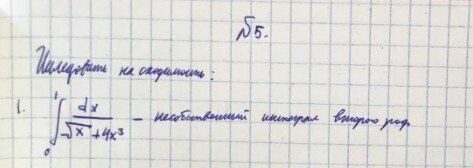 №5.
Исследовать на сходимость:
1. ∫₀¹ dx / (√x + 4x³) – несобственный интеграл второго рода